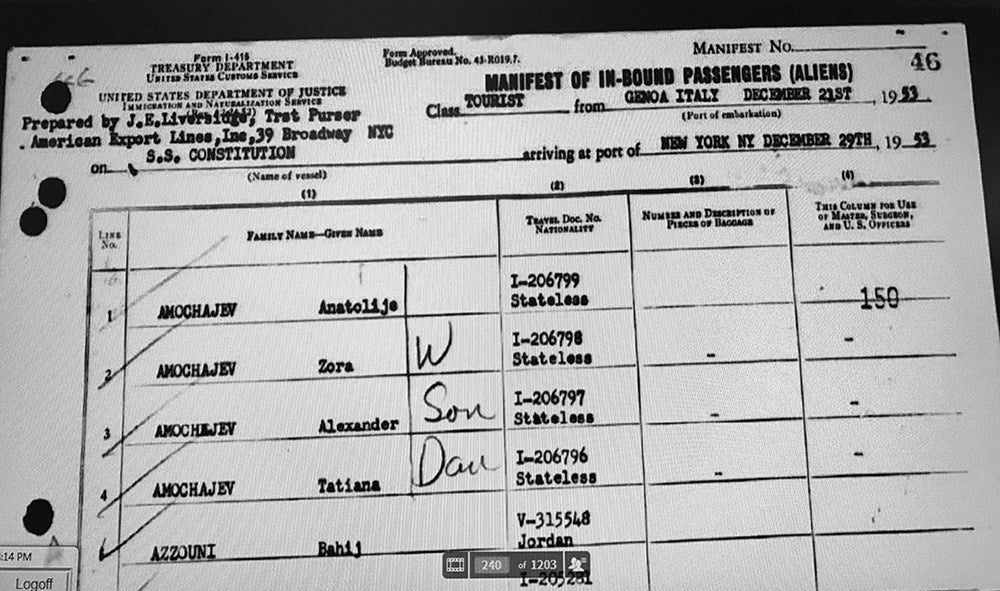 Form I-415
TREASURY DEPARTMENT
UNITED STATES CUSTOMS SERVICE
Form Approved.
Budget Bureau No. 43-R019.7.
MANIFEST No.
46
UNITED STATES DEPARTMENT OF JUSTICE
IMMIGRATION AND NATURALIZATION SERVICE
MANIFEST OF IN-BOUND PASSENGERS (ALIENS)
Class TOURIST from GENOA ITALY DECEMBER 21ST, 1953
(Port of embarkation)
Prepared by J.E.Liversidge, Trst Purser
American Export Lines,Inc,39 Broadway NYC
on S.S. CONSTITUTION arriving at port of NEW YORK NY DECEMBER 29TH, 1953
(Name of vessel)
(1) (2) (3) (4)
LINE No.
FAMILY NAME—GIVEN NAME
TRAVEL DOC. NO.
NATIONALITY
NUMBER AND DESCRIPTION OF
PIECES OF BAGGAGE
THIS COLUMN FOR USE
OF MASTER, SURGEON,
AND U. S. OFFICERS
1 AMOCHAJEV Anatolije I-206799
Stateless 150
2 AMOCHAJEV Zora W I-206798
Stateless - -
3 AMOCHAJEV Alexander Son I-206797
Stateless - -
4 AMOCHAJEV Tatiana Dau I-206796
Stateless - -
AZZOUNI Bahij V-315548
Jordan
I-205281
:14 PM
Logoff
240 of 1203